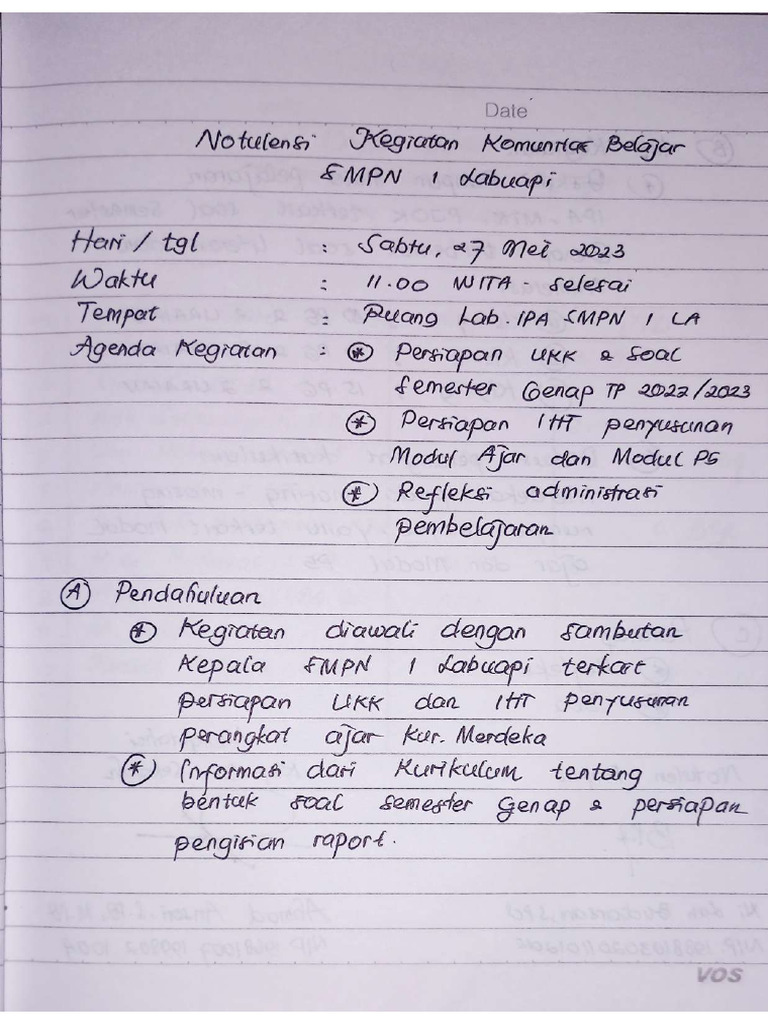 Date
Notulensi Kegiatan Komunitas Belajar
SMPN 1 Labuapi
Hari / tgl : Sabtu, 27 Mei 2023
Waktu : 11.00 WITA - selesai
Tempat : Ruang Lab. IPA SMPN 1 LA
Agenda Kegiatan : * Persiapan UKK & Soal
Semester Genap TP 2022/2023
* Persiapan IHT penyusunan
Modul Ajar dan Modul P5
* Refleksi administrasi
pembelajaran
A Pendahuluan
* Kegiatan diawali dengan sambutan
Kepala SMPN 1 Labuapi terkait
persiapan UKK dan IHT penyusunan
perangkat ajar Kur. Merdeka
* Informasi dari Kurikulum tentang
bentuk soal semester Genap & persiapan
pengisian raport.
VOS